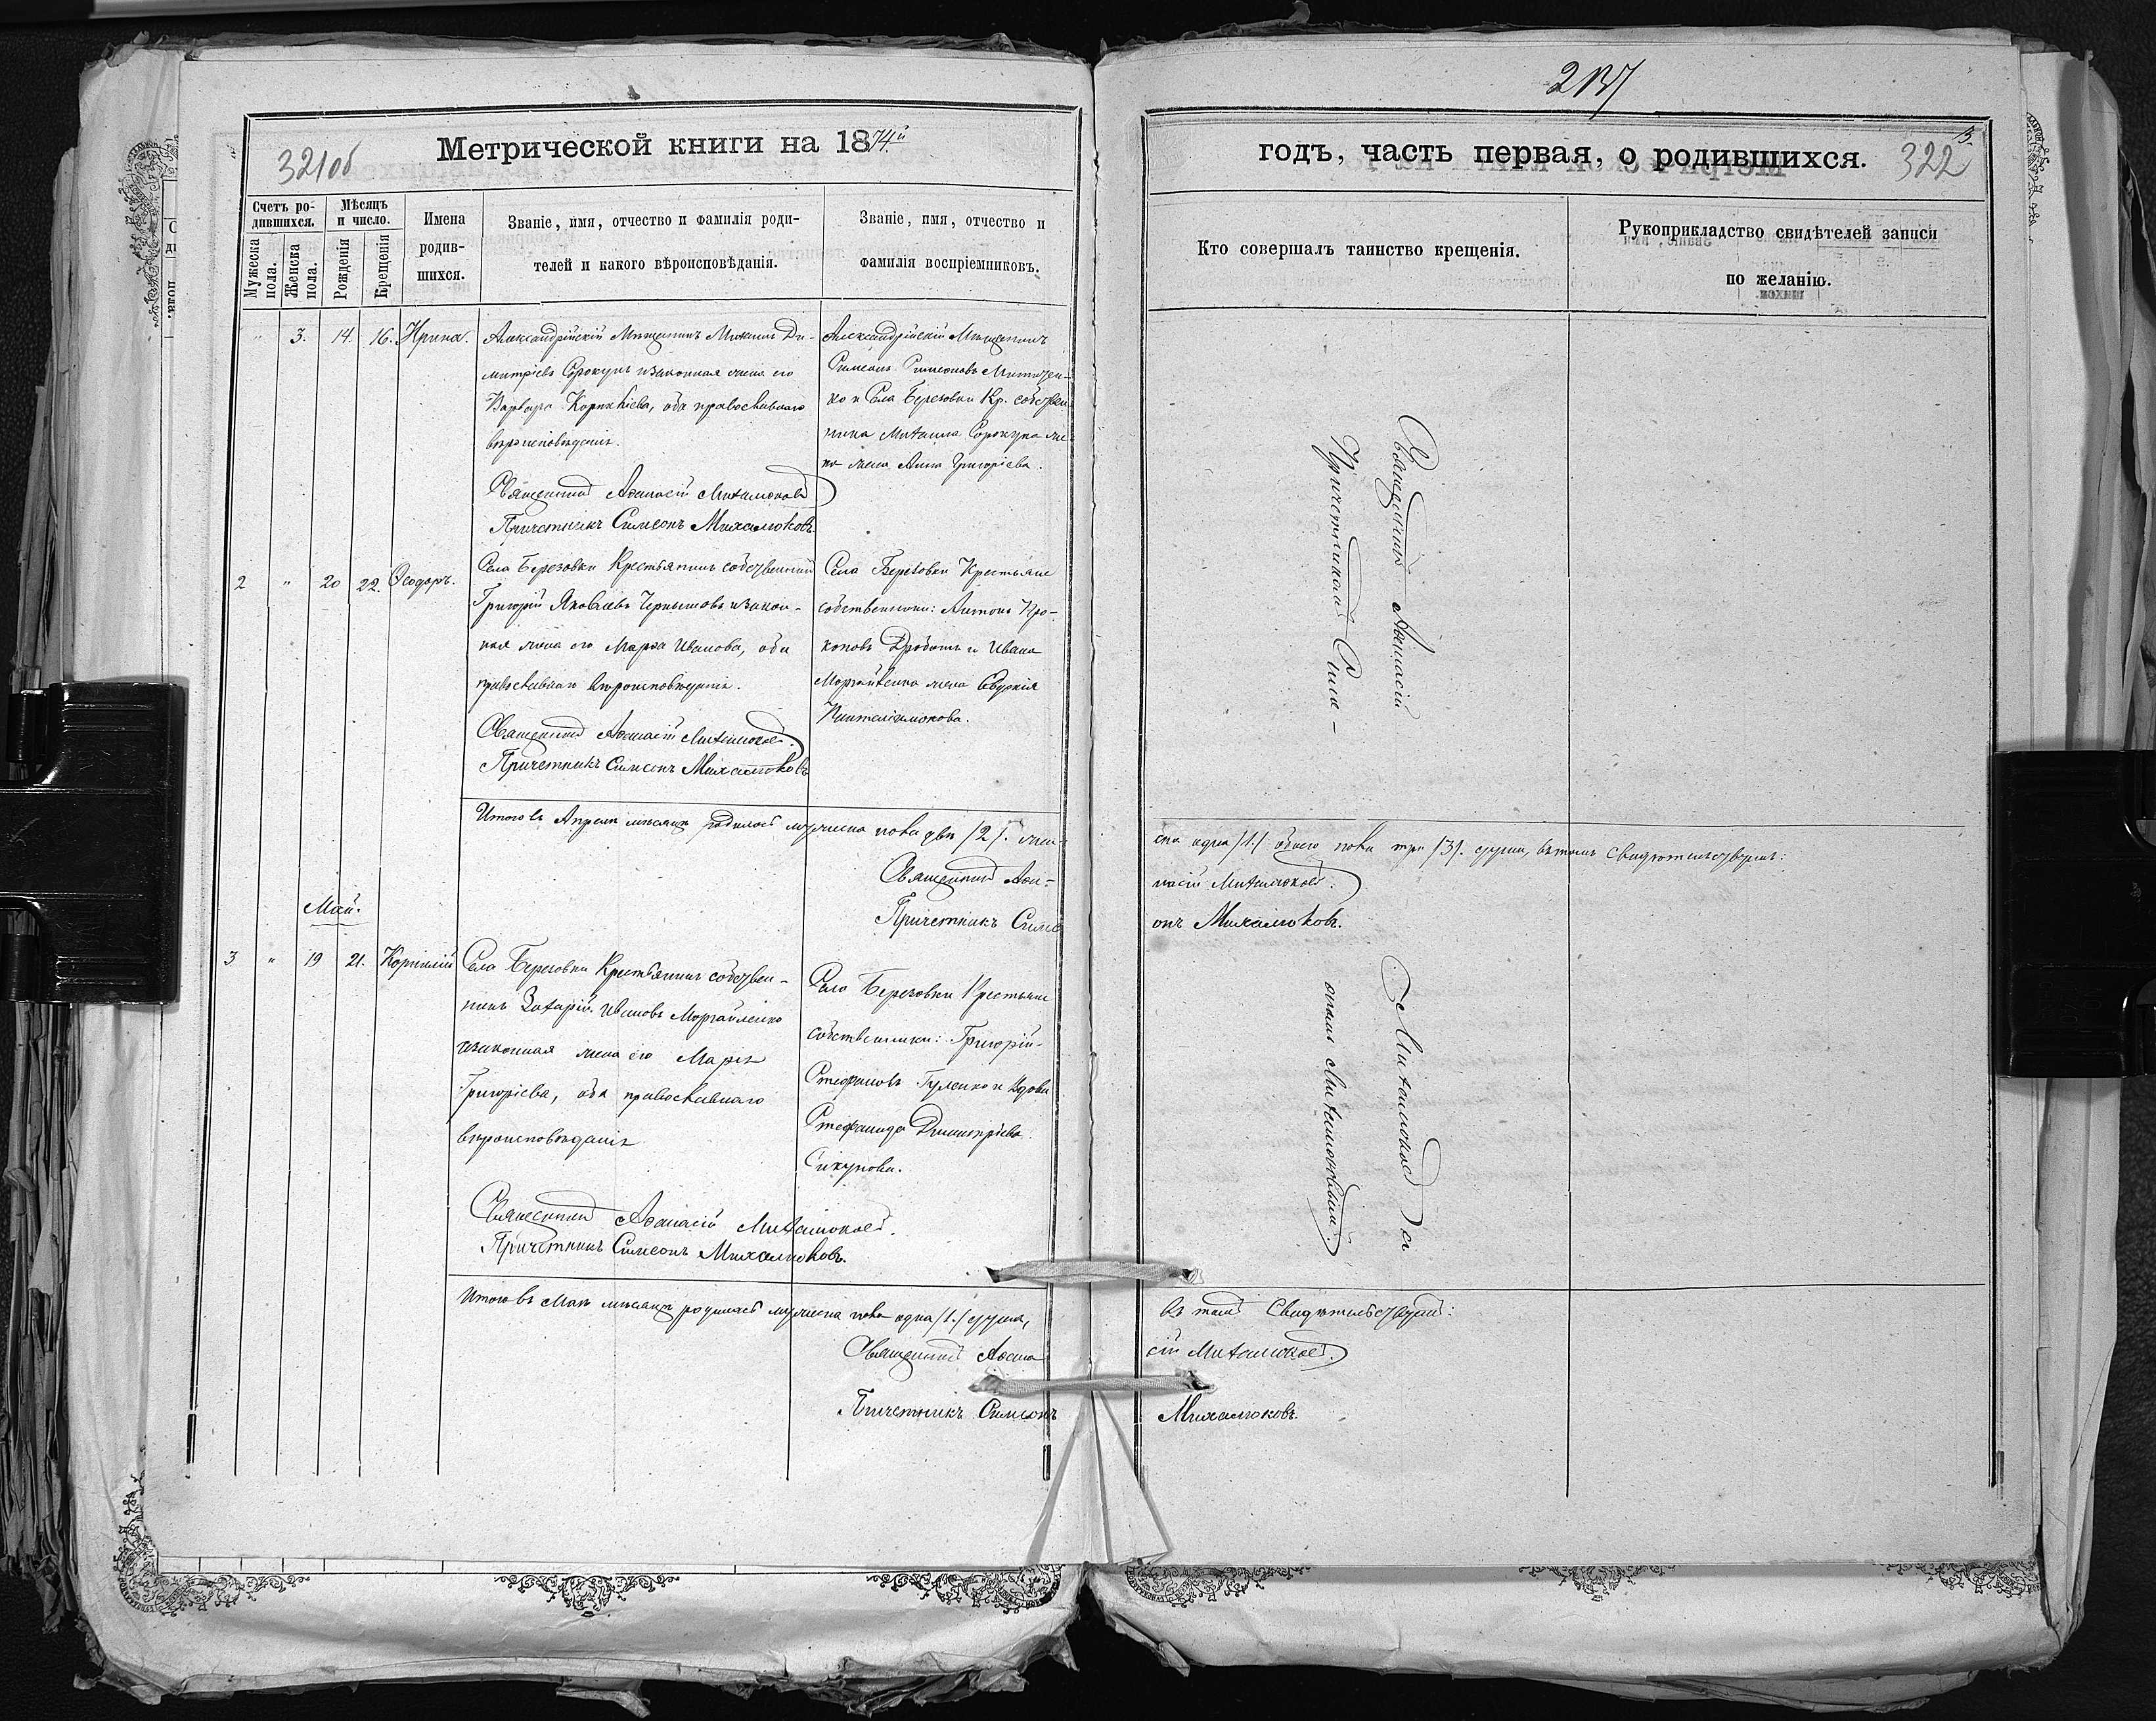 321об
Метрической книги на 1874й
Счетъ ро-
дившихся.
Мужеска
пола.
Женска
пола.
Мѣсяцъ
и число.
Рожденія
Крещенія
Имена
родив-
шихся.
Званіе, имя, отчество и фамилія роди-
телей и какого вѣроисповѣданія.
Званіе, имя, отчество и
фамилія воспріемниковъ.
" 3. 14. 16. Ирина.
Александрійскій Мѣщанинъ Михаилъ Ди-
митріевъ Сорокунъ и законная жена его
Варвара Корниліева, оба православнаго
вѣроисповѣданія.
Священникъ Аѳанасій Михалюковъ
Причетникъ Симеонъ Михалюковъ.
Александрійскій Мѣщанинъ
Симеонъ Симеоновъ
ко и Села Березовки Кр. собствен
ника Михаила Сорокуна
жена Анна Григоріева.
2 " 20 22. Ѳеодоръ.
Села Березовки Крестьянинъ собственникъ
Григорій Яковлевъ Чернышовъ и закон-
ная жена его Марѳа Иванова, оба
православнаго вѣроисповѣданія.
Священникъ Аѳанасій Михалюковъ.
Причетникъ Симеонъ Михалюковъ
Села Березовки Крестьяне
собственники: Антонъ Про-
коповъ Дроботъ и Ивана
жена Евдокія
Итого въ Апрѣлѣ мѣсяцѣ родилось мужеска пола два /2/. жен-
Священникъ Аѳа-
Причетникъ Симе
Май.
3 " 19 21. Корнилій
Села Березовки Крестьянинъ собствен-
никъ Захарій Ивановъ
и законная жена его Марія
Григоріева, оба православнаго
вѣроисповѣданія
Священникъ Аѳанасій Михалюковъ.
Причетникъ Симеонъ Михалюковъ.
Села Березовки Крестьяне
собственники: Григорій
Стефановъ Гуленко и вдова
Стефанида Димитріева
Сикунова.
Итого въ Маѣ мѣсяцѣ родилась мужеска пола одна /1./ душа,
Священникъ Аѳана
Причетникъ Симеонъ
годъ, часть первая, о родившихся.
322
Кто совершалъ таинство крещенія.
Рукоприкладство свидѣтелей записи
по желанію.
Священникъ Аѳанасій Михалюковъ съ
Причетникомъ Симе-
ономъ Михалюковымъ.
ска одна /1./ обоего пола три /3/. души, въ томъ свидѣтельствуемъ:
насій Михалюковъ.
онъ Михалюковъ.
въ томъ Свидѣтельствуемъ:
сій Михалюковъ.
Михалюковъ.